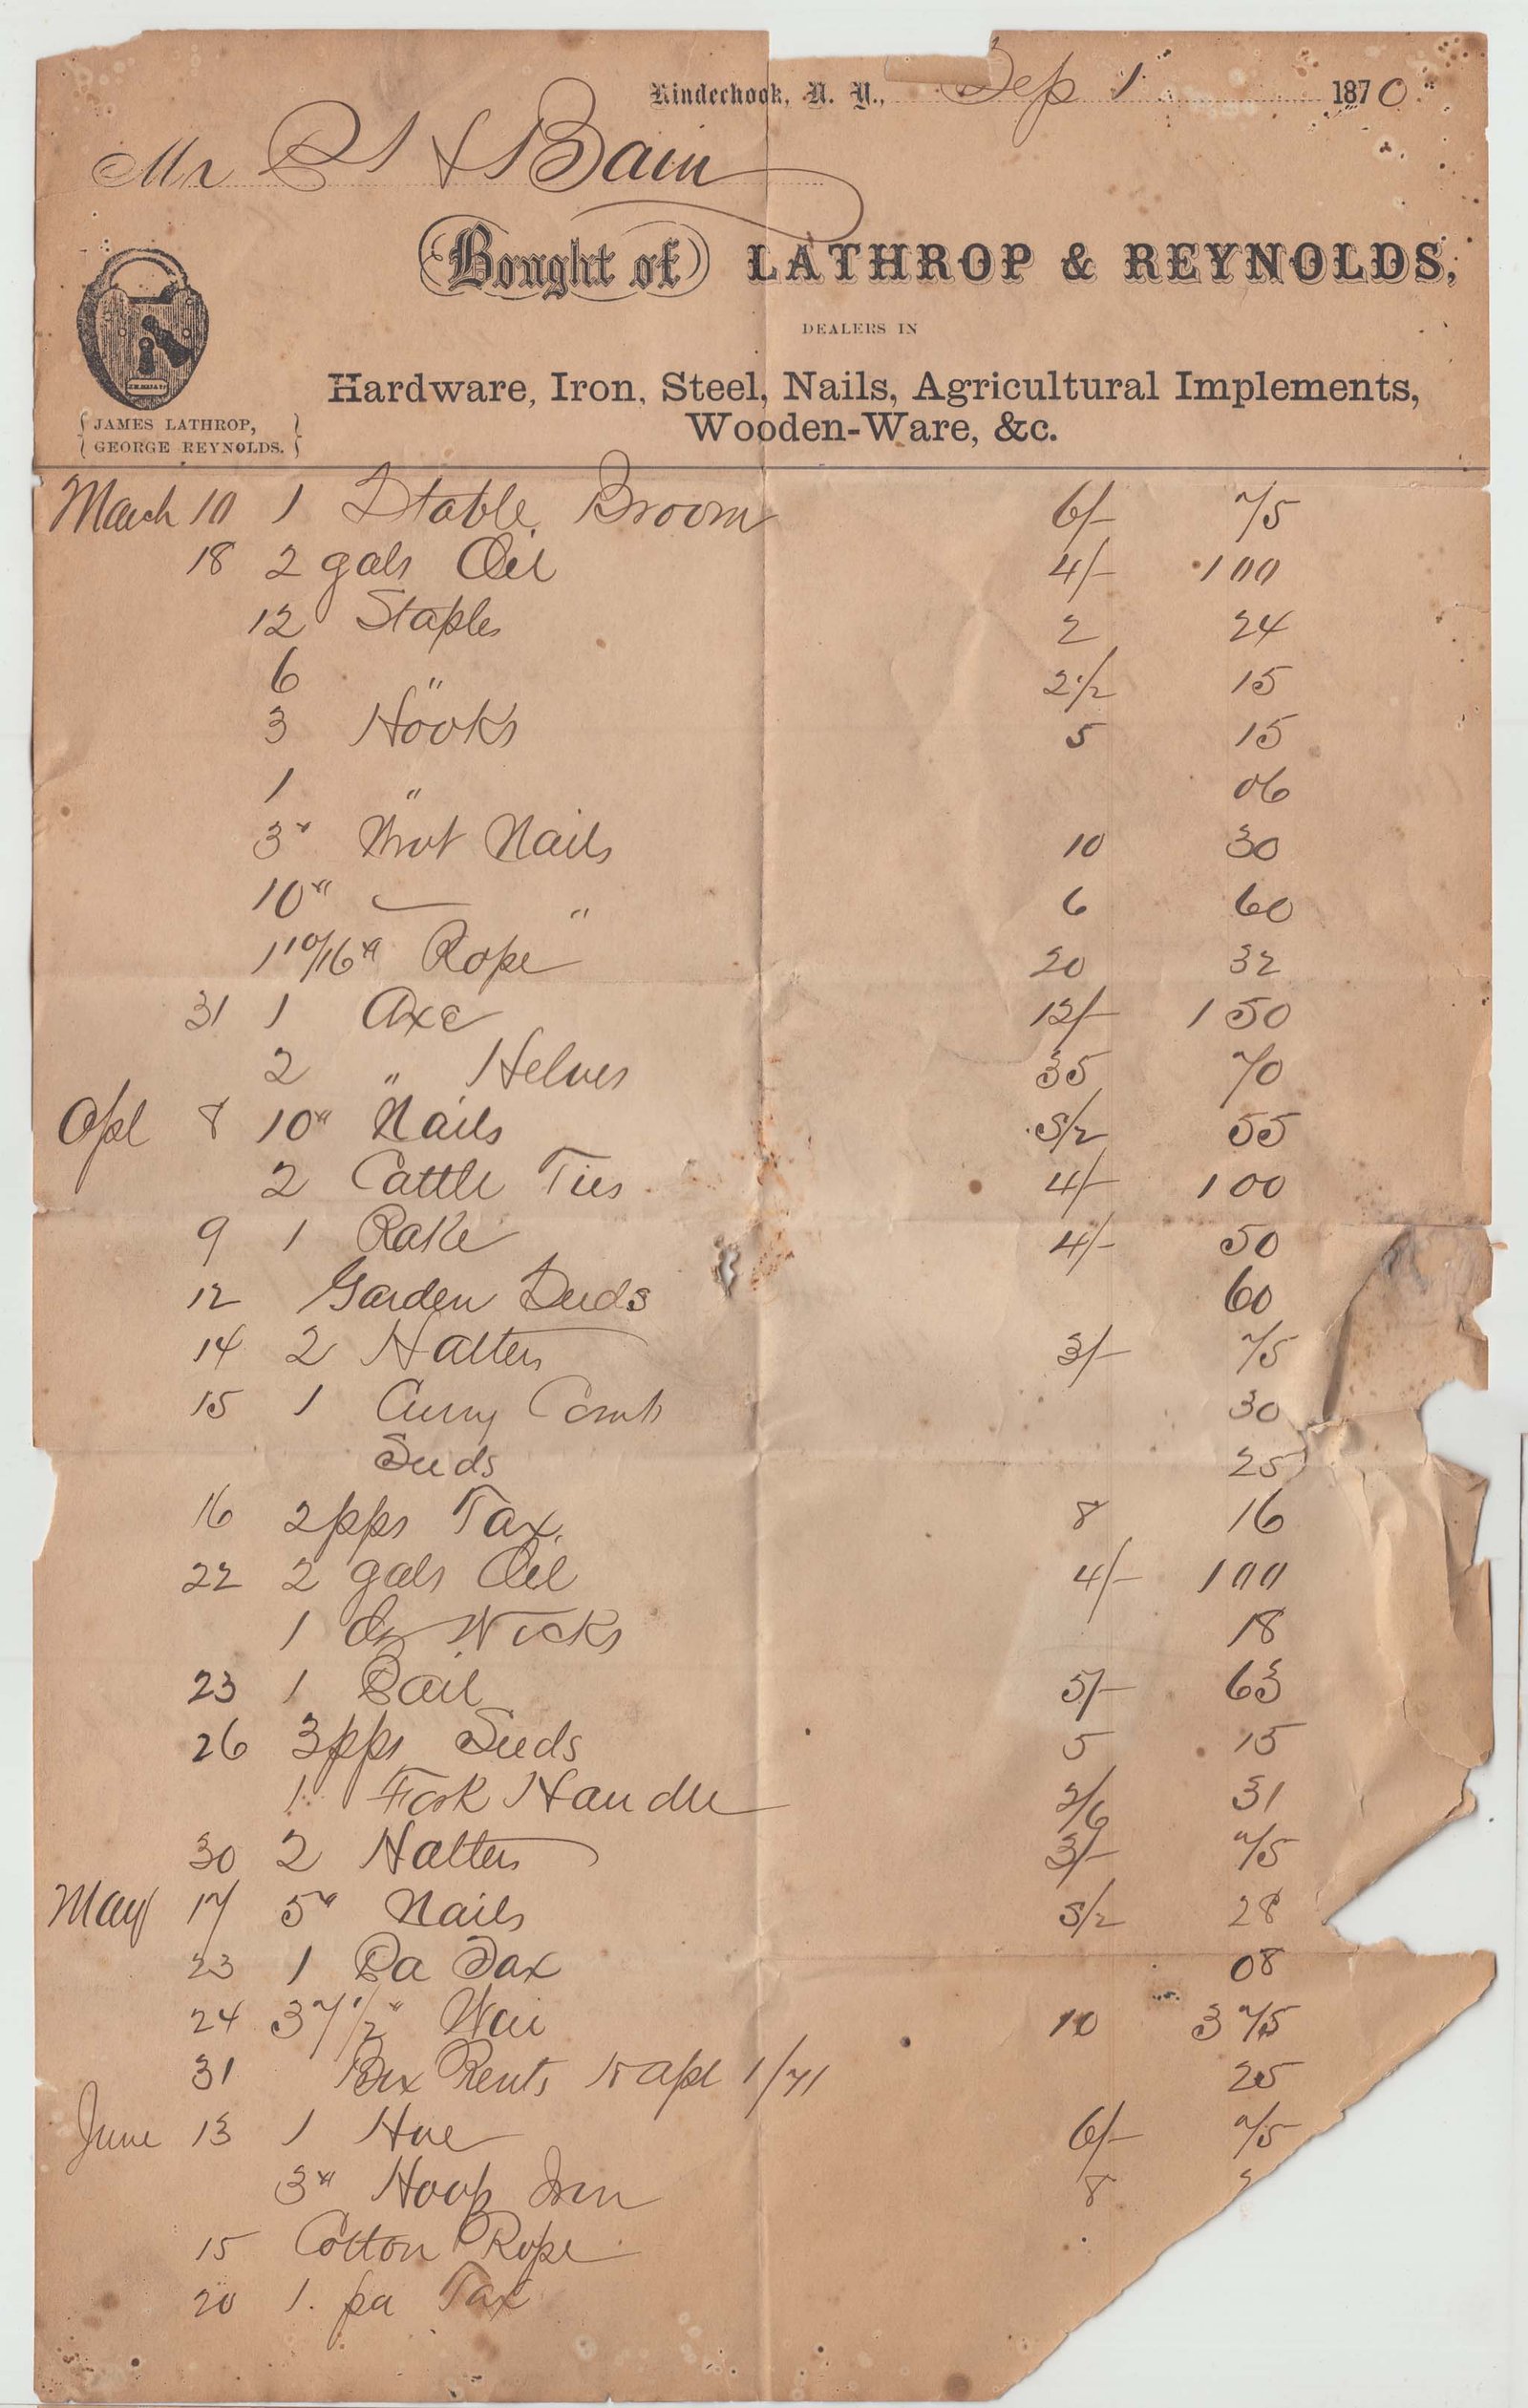 Kinderhook, N. Y., Sep 1 1870
Mr P S Bain
Bought of LATHROP & REYNOLDS,
DEALERS IN
Hardware, Iron, Steel, Nails, Agricultural Implements,
Wooden-Ware, &c.
JAMES LATHROP,
GEORGE REYNOLDS.
March 10 1 Stable Broom 6/- 75
18 2 gals Oil 4/- 1 00
12 Staples 2 24
6 " 2 1/2 15
3 Hooks 5 15
1 " 06
3# Wrot Nails 10 30
10# — " 6 60
1 10/16# Rope 20 32
31 1 Axe 12/- 1 50
2 " Helves 35 70
Apl 8 10# Nails 5/2 55
2 Cattle Ties 4/- 1 00
9 1 Rake 4/- 50
12 Garden Seeds 60
14 2 Halters 3/- 75
15 1 Curry Comb 30
Seeds 25
16 2 pps Tax 8 16
22 2 gals Oil 4/- 1 00
1 dz Wicks 18
23 1 Pail 5/- 63
26 3 pps Seeds 5 15
1 Fork Handle 2/6 31
30 2 Halters 3/- 75
May 17 5# Nails 5/2 28
23 1 Pa Tax 08
24 37 1/2 # Wire 10 3 75
31 Box Rents to Apl 1/71 25
June 13 1 Hoe 6/- 75
3# Hoop Iron 8 2
15 Cotton Rope
20 1 pa Tax